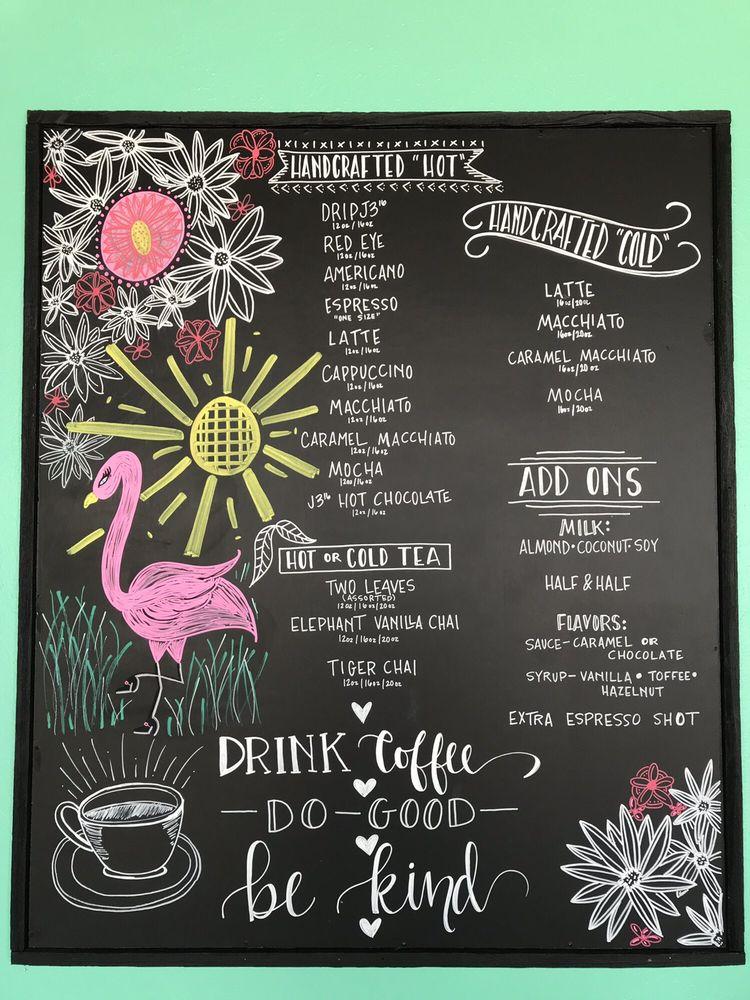 HANDCRAFTED "HOT"
DRIP J3¹⁶
12oz/16oz
RED EYE
12oz/16oz
AMERICANO
12oz/16oz
ESPRESSO
"ONE SIZE"
LATTE
12oz/16oz
CAPPUCCINO
12oz/16oz
MACCHIATO
12oz/16oz
CARAMEL MACCHIATO
12oz/16oz
MOCHA
12oz/16oz
J3¹⁶ HOT CHOCOLATE
12oz/16oz
HOT OR COLD TEA
TWO LEAVES
(ASSORTED)
12oz/16oz/20oz
ELEPHANT VANILLA CHAI
12oz/16oz/20oz
TIGER CHAI
12oz/16oz/20oz
HANDCRAFTED "COLD"
LATTE
16oz/20oz
MACCHIATO
16oz/20oz
CARAMEL MACCHIATO
16oz/20oz
MOCHA
16oz/20oz
ADD ONS
MILK:
ALMOND•COCONUT•SOY
HALF & HALF
FLAVORS:
SAUCE-CARAMEL OR
CHOCOLATE
SYRUP-VANILLA•TOFFEE•
HAZELNUT
EXTRA ESPRESSO SHOT
DRINK Coffee
—DO—GOOD—
be kind